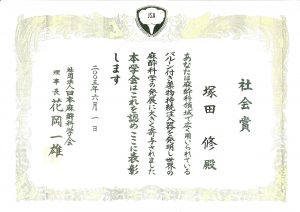 JSA
社会賞
塚田 修 殿
あなたは麻酔科領域で広く用いられている
バルーン付き薬物持続注入器を発明し世界の
麻酔科学の発展に大きく寄与されました
本学会はこれを認めここに表彰
します
二〇〇五年六月一日
社団法人日本麻酔科学会
理事長 花岡一雄